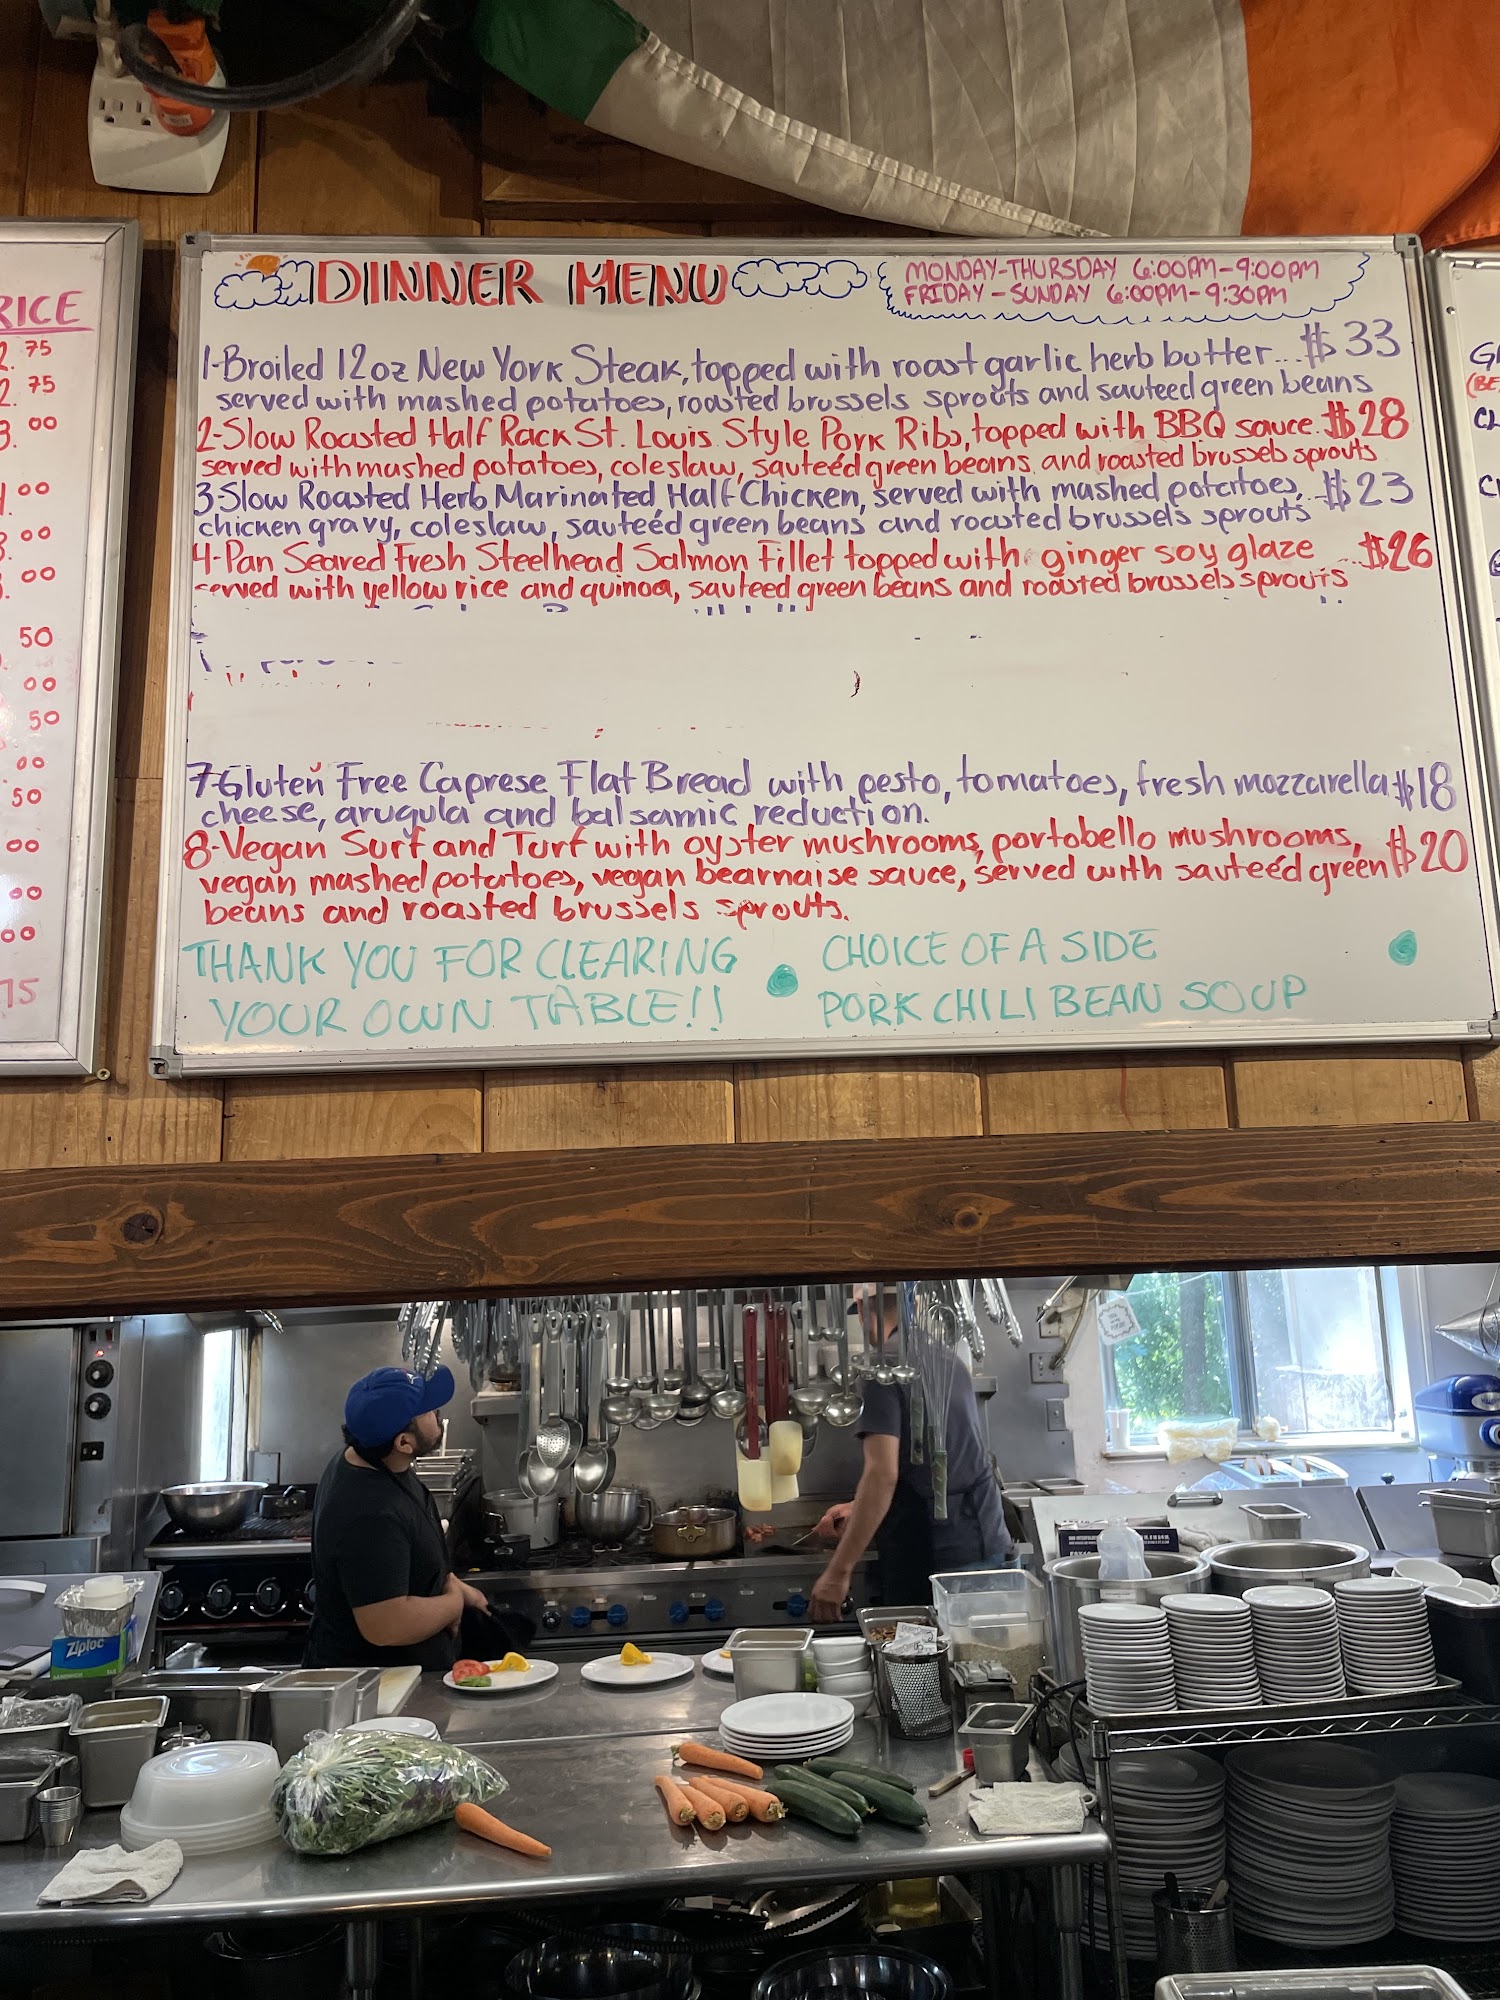 RICE
2.75
2.75
3.00
.00
.00
.00
50
00
50
.00
50
00
00
00
75
DINNER MENU
MONDAY-THURSDAY 6:00PM-9:00PM
FRIDAY-SUNDAY 6:00PM-9:30PM
1-Broiled 12oz New York Steak, topped with roast garlic herb butter...$33
served with mashed potatoes, roasted brussels sprouts and sauteed green beans
2-Slow Roasted Half Rack St. Louis Style Pork Ribs, topped with BBQ sauce.$28
served with mashed potatoes, coleslaw, sauteéd green beans, and roasted brussels sprouts
3-Slow Roasted Herb Marinated Half Chicken, served with mashed potatoes, ...$23
chicken gravy, coleslaw, sauteéd green beans and roasted brussels sprouts
4-Pan Seared Fresh Steelhead Salmon Fillet topped with ginger soy glaze ...$26
served with yellow rice and quinoa, sauteed green beans and roasted brussels sprouts
7-Gluten Free Caprese Flat Bread with pesto, tomatoes, fresh mozzarella $18
cheese, arugula and balsamic reduction.
8-Vegan Surf and Turf with oyster mushrooms, portobello mushrooms, $20
vegan mashed potatoes, vegan bearnaise sauce, served with sauteéd green
beans and roasted brussels sprouts.
THANK YOU FOR CLEARING
YOUR OWN TABLE!!
CHOICE OF A SIDE
PORK CHILI BEAN SOUP
(BE
CL
Ziploc